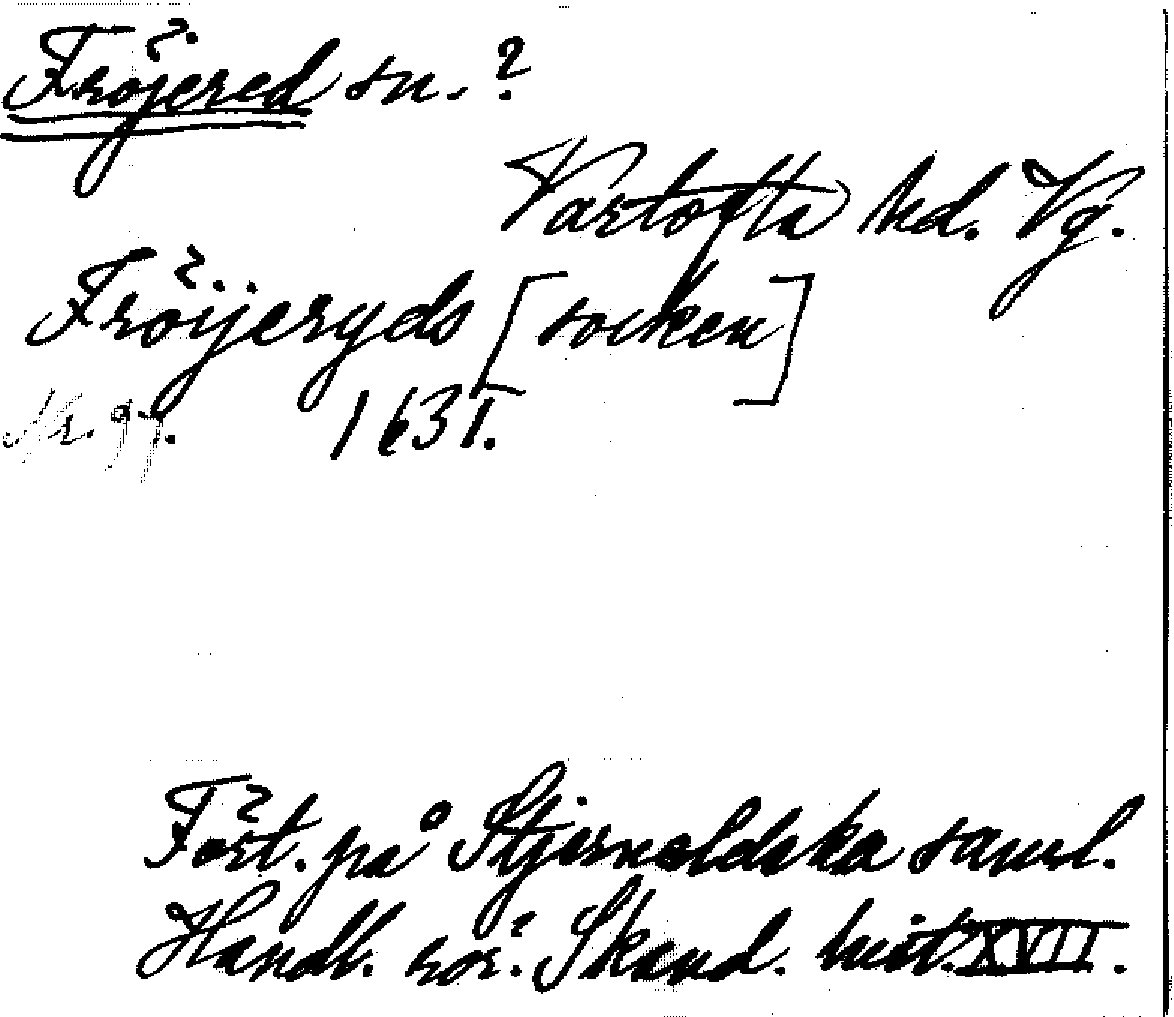 Fröjered sn. ?
Vartofta hd. Vg.
Fröijeryds [socken]
Nr. 97. 1631.
Fört. på Stjerneldska saml.
Handl. rör. Skand. hist. XVII.